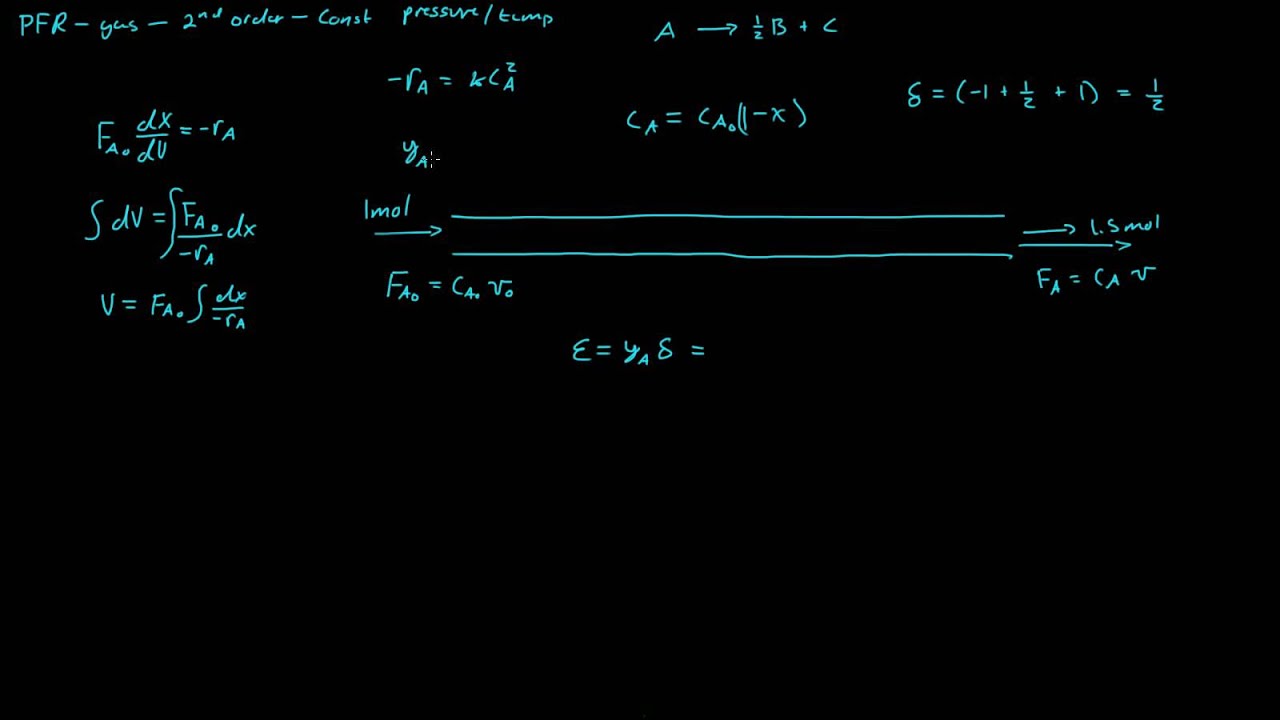 PFR - gas - 2nd order - Const pressure/temp
A → ½B + C
-rA = kCA²
δ = (-1 + ½ + 1) = ½
CA = CA₀(1-x)
FA₀ dX/dV = -rA
yA
∫dV = ∫ FA₀/-rA dx
1mol
→ 1.5mol
V = FA₀ ∫ dx/-rA
FA₀ = CA₀ v₀
FA = CA v
ε = yA δ =